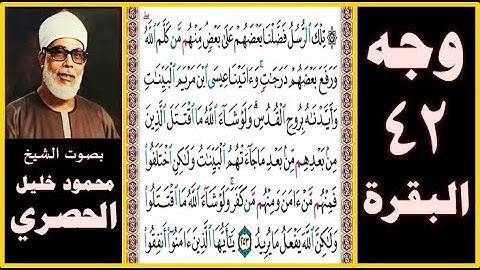 وجه
٤٢
البقرة
۞ تِلْكَ ٱلرُّسُلُ فَضَّلْنَا بَعْضَهُمْ عَلَىٰ بَعْضٍ مِّنْهُم مَّن كَلَّمَ ٱللَّهُ
وَرَفَعَ بَعْضَهُمْ دَرَجَٰتٍ وَءَاتَيْنَا عِيسَى ٱبْنَ مَرْيَمَ ٱلْبَيِّنَٰتِ
وَأَيَّدْنَٰهُ بِرُوحِ ٱلْقُدُسِ وَلَوْ شَآءَ ٱللَّهُ مَا ٱقْتَتَلَ ٱلَّذِينَ
مِنۢ بَعْدِهِم مِّنۢ بَعْدِ مَا جَآءَتْهُمُ ٱلْبَيِّنَٰتُ وَلَٰكِنِ ٱخْتَلَفُوا۟
فَمِنْهُم مَّنْ ءَامَنَ وَمِنْهُم مَّن كَفَرَ وَلَوْ شَآءَ ٱللَّهُ مَا ٱقْتَتَلُوا۟
وَلَٰكِنَّ ٱللَّهَ يَفْعَلُ مَا يُرِيدُ ٢٥٣ يَٰٓأَيُّهَا ٱلَّذِينَ ءَامَنُوٓا۟ أَنفِقُوا۟
بصوت الشيخ
محمود خليل
الحصري